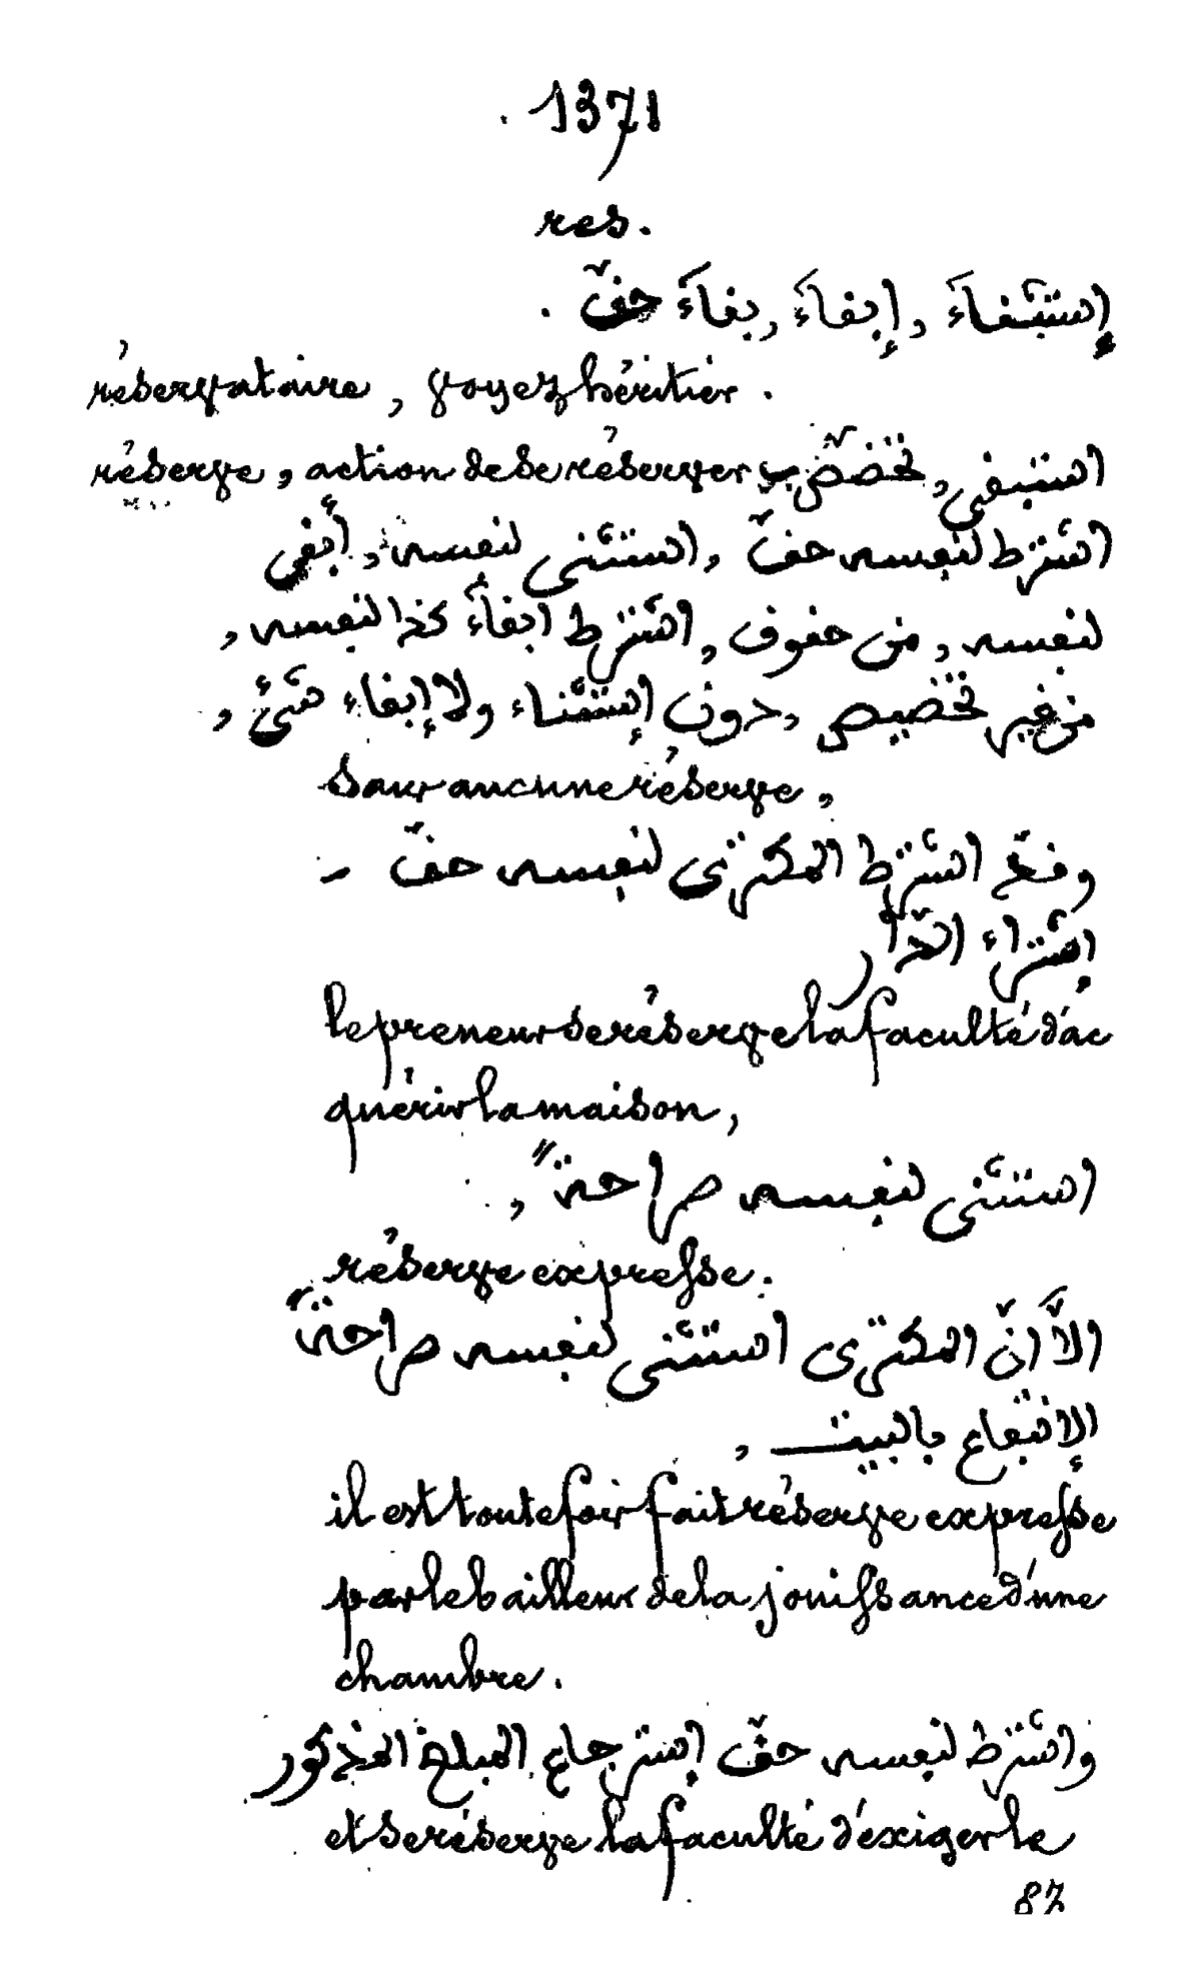 1371
res.
إستبقاءَ, إبقاءَ, بقاءَ حقّ.
réservataire, voyez héritier.
réserve, action de se réserver استبقى, تخصّص بـ
اشترط لنفسه حقّ, استثنى لنفسه, أبقى
لنفسه, من حقوق, اشترط ابقاءَ كذا لنفسه,
من غير تخصيص, دون إستثناء ولا إبقاء شَئٍ,
sans aucune réserve,
وقع اشترط المكترى لنفسه حقّ -
إشتراء الدّار
le preneur se réserve la faculté d'ac
quérir la maison,
استثنى لنفسه صراحةً,
réserve expresse.
الاّ انّ المكترى استثنى لنفسه صراحةً
الإنتفاع بالبيت,
il est toutefois fait réserve expresse
par le bailleur de la jouissance d'une
chambre.
واشترط لنفسه حقّ إسترجاع المبلغ المذكور
et se réserve la faculté d'exiger le
87